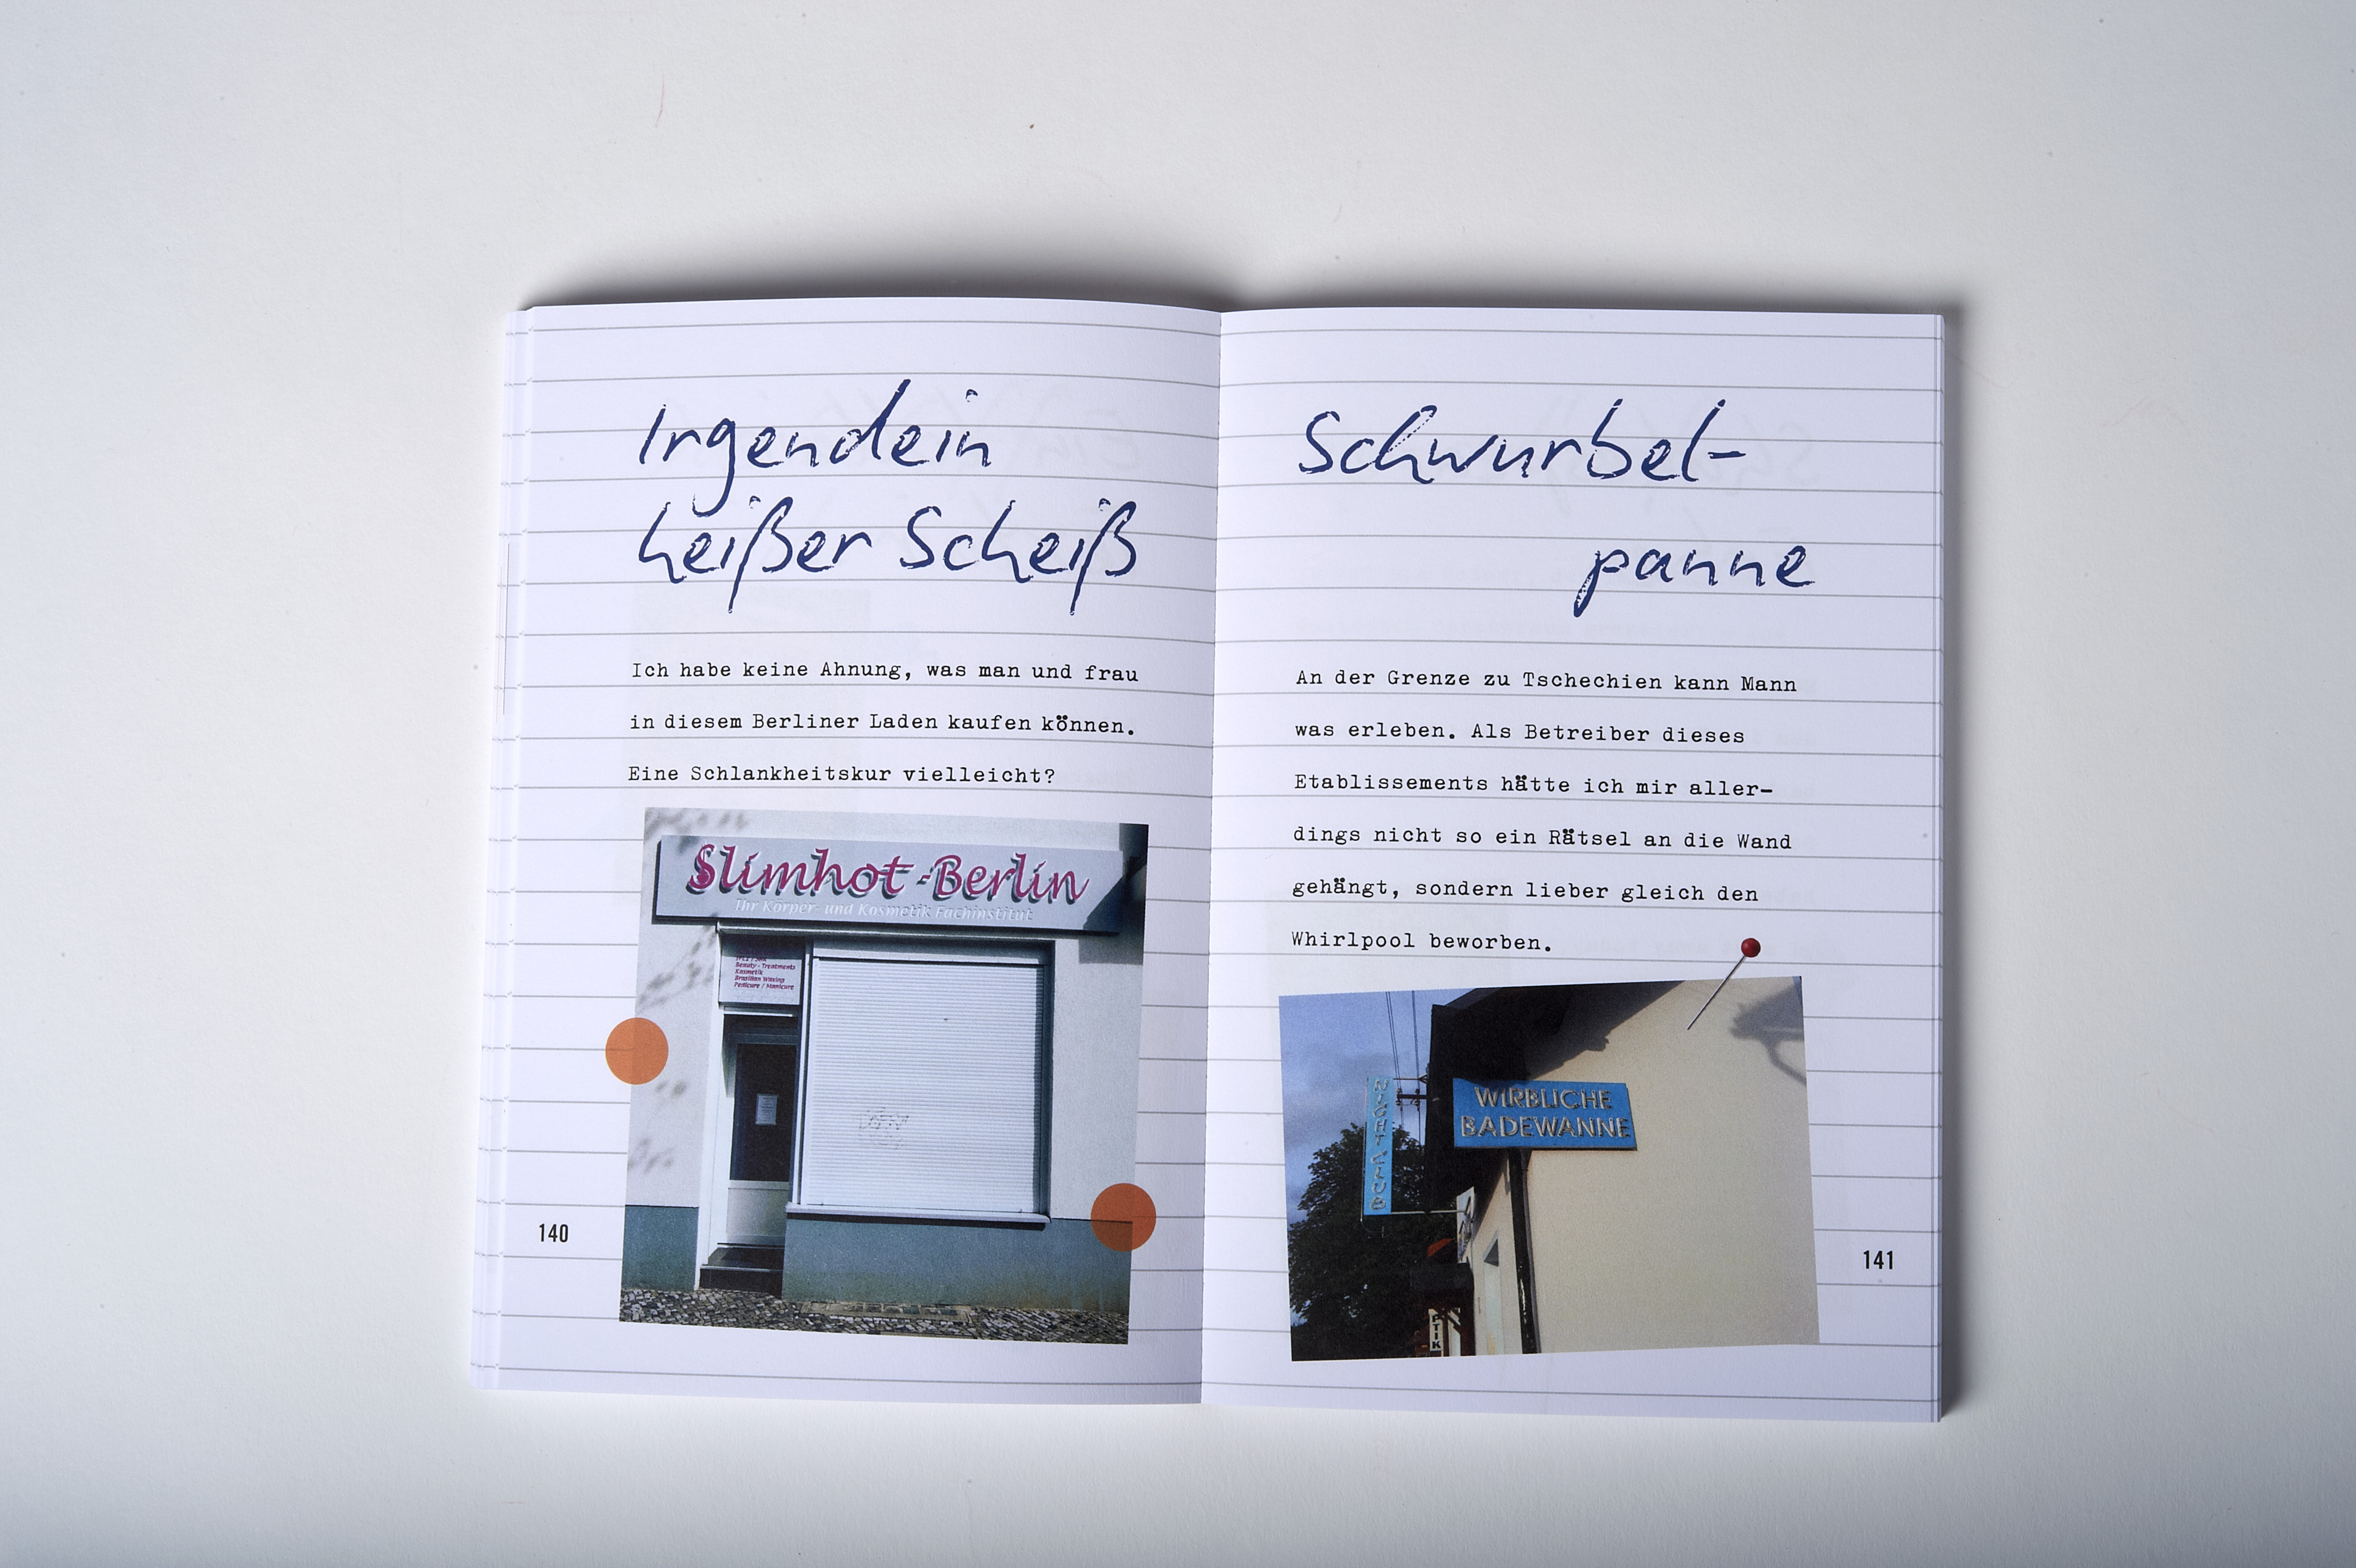 Irgendein
heißer Scheiß
Ich habe keine Ahnung, was man und frau
in diesem Berliner Laden kaufen können.
Eine Schlankheitskur vielleicht?
Slimhot-Berlin
Ihr Körper- und Kosmetik Fachinstitut
Beauty - Treatments
Kosmetik
Brazilian Waxing
Pedicure / Manicure
140
Schwurbel-
panne
An der Grenze zu Tschechien kann Mann
was erleben. Als Betreiber dieses
Etablissements hätte ich mir aller-
dings nicht so ein Rätsel an die Wand
gehängt, sondern lieber gleich den
Whirlpool beworben.
WIRBLICHE
BADEWANNE
NIGHT CLUB
PTIK
141